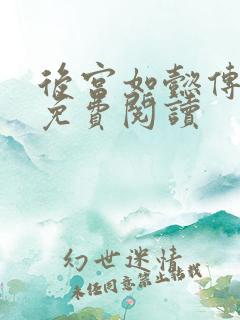 後宮如懿傳
免費閱讀
幻世迷情
未經同意禁止轉載